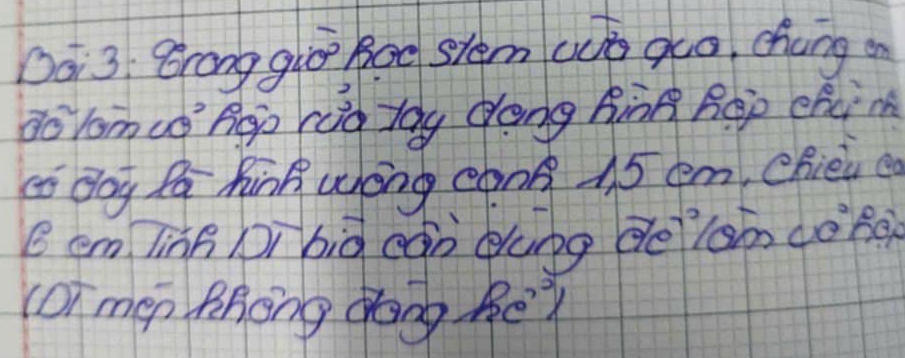 Bài 3: Trong giờ học stem vừa qua, chúng em
đã làm vỏ hộp rửa tay dạng hình hộp chữ nh
có đáy là hình vuông cạnh 1,5 em, chiều ca
em. Tính DT bìa cần dùng để làm vỏ hộp
(DT mép không đáng kể)